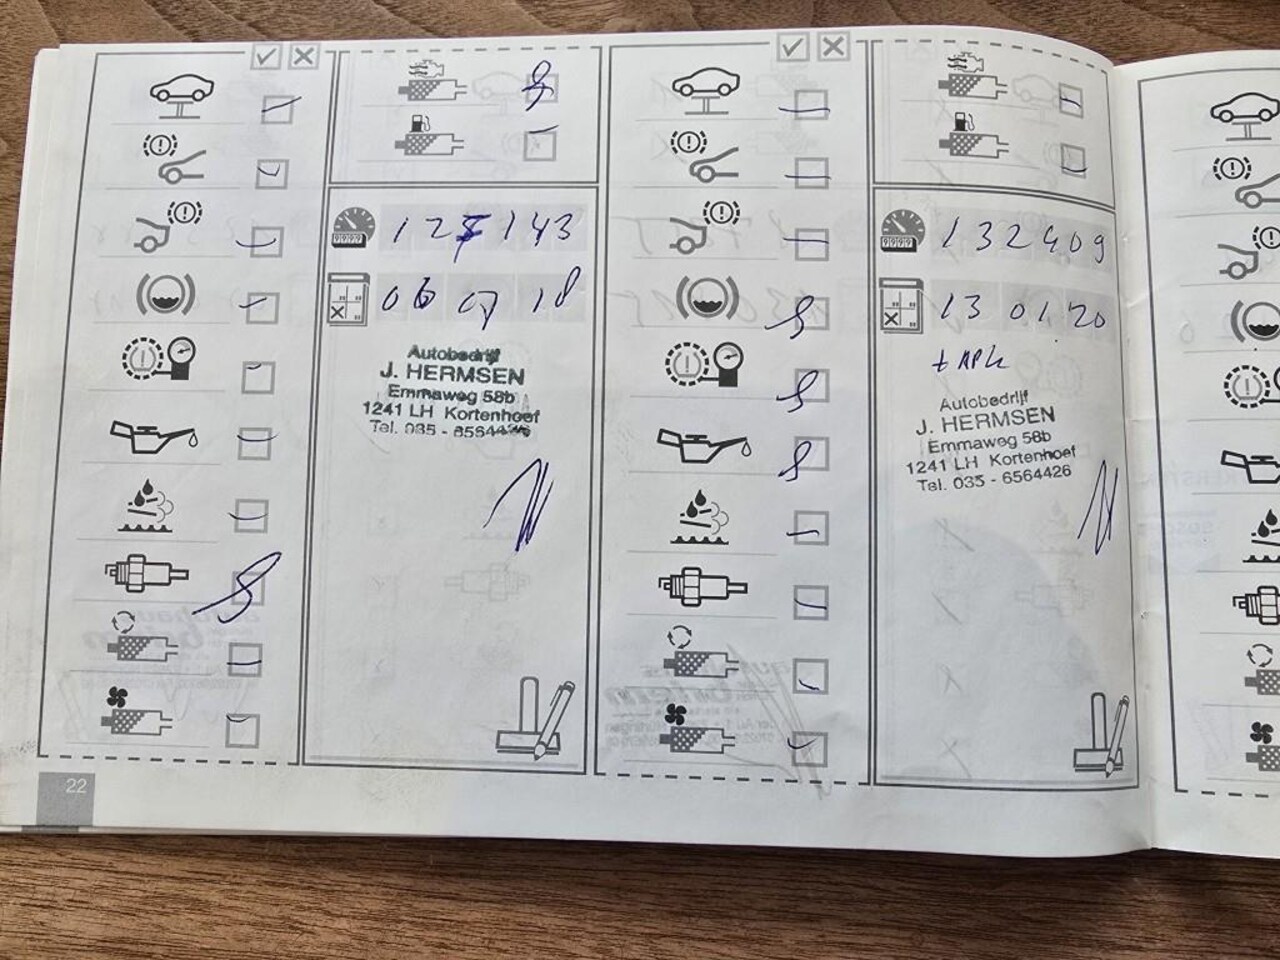 06 07 18
Autobedrijf
J. HERMSEN
Emmaweg 58b
1241 LH Kortenhoef
Tel. 035 - 6564426
132409
13 01 20
+ APK
Autobedrijf
J. HERMSEN
Emmaweg 58b
1241 LH Kortenhoef
Tel. 035 - 6564426
22